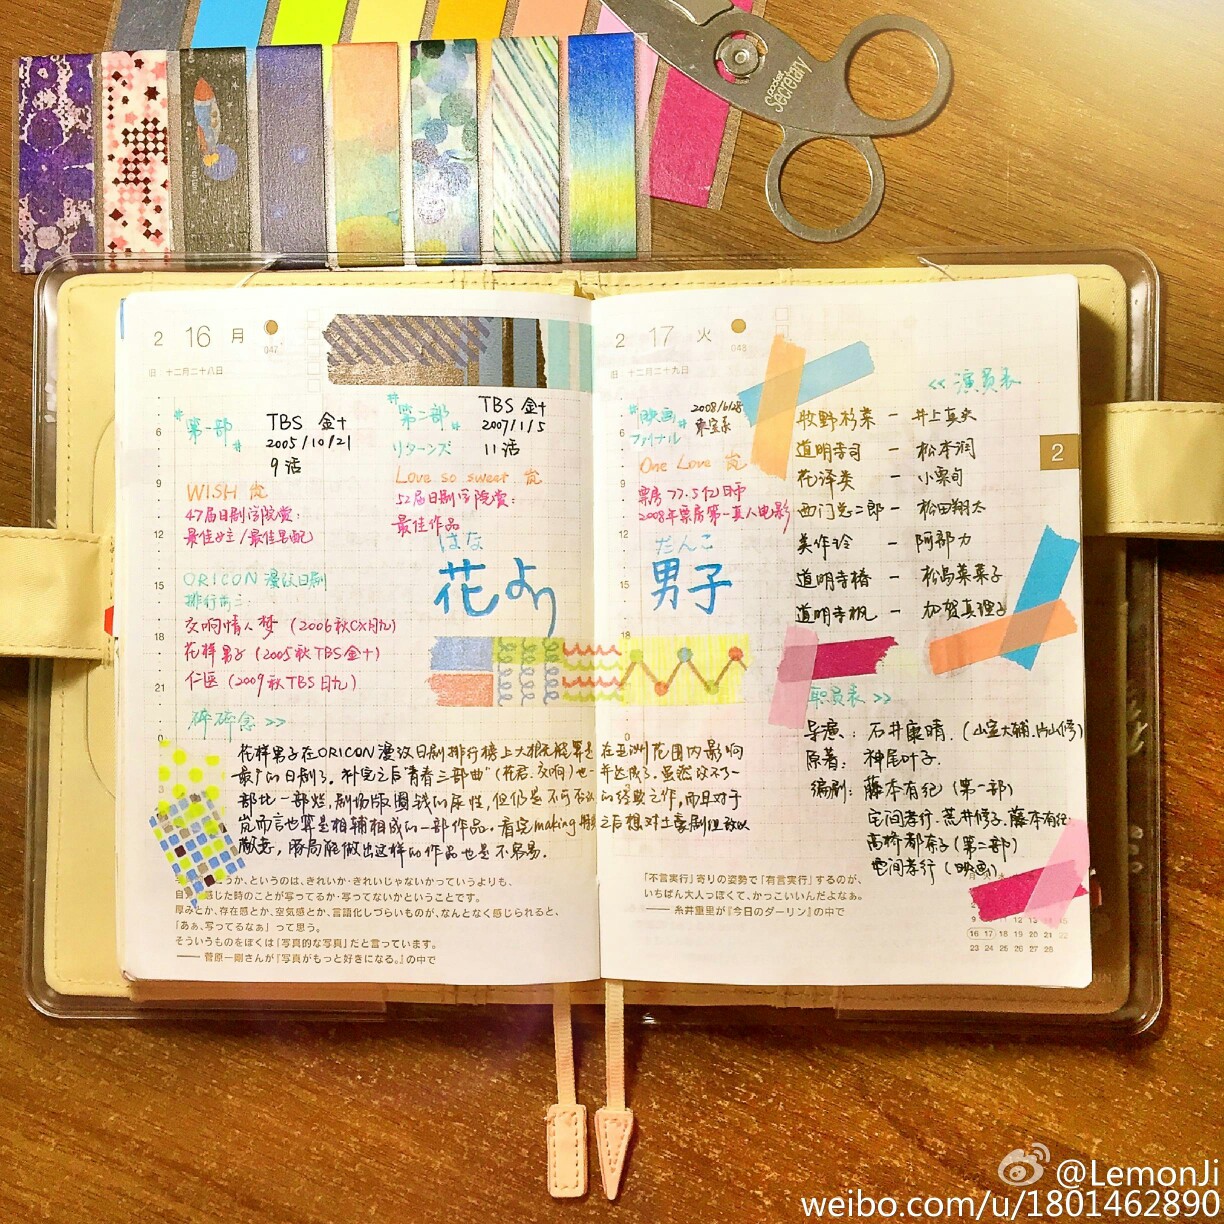 pocket
secretary
2 16 月
047
旧 十二月二十八日
第一部
TBS 金十
2005/10/21
9话
WISH 岚
47届日剧学院赏:
最佳女主/最佳男配
ORICON 漫改日剧
排行前三:
交响情人梦 (2006秋CX月九)
花样男子 (2005秋TBS金十)
仁医 (2009秋TBS日九)
碎碎念 >>
第二部
リターンズ
TBS 金十
2007/1/5
11话
Love so sweet 岚
52届日剧学院赏:
最佳作品
はな
花より
2 17 火
048
旧 十二月二十九日
映画
ファイナル
2008/6/28
東宝系
One Love 岚
票房77.5亿日币
2008年票房第一真人电影
だんご
男子
<< 演员表
牧野杉菜 - 井上真央
道明寺司 - 松本润
花泽类 - 小栗旬
西门总二郎 - 松田翔太
美作玲 - 阿部力
道明寺椿 - 松岛菜菜子
道明寺枫 - 加贺真理子
2
职员表 >>
导演: 石井康晴. (山室大辅.片山修)
原著: 神尾叶子.
编剧: 藤本有纪 (第一部)
宅间孝行. 荒井修子. 藤本有纪
高桥都奈子 (第二部)
宅间孝行 (映画)
花样男子在ORICON漫改日剧排行榜上大概是能算是在亚洲范围内影响
最广的日剧了. 补完之后"青春三部曲"(花君.交响)也一并达成了. 虽然改不了一
部比一部烂, 剧场版圈钱的尿性, 但仍是不可否认的经典之作, 而且对于
岚而言也算是相辅相成的一部作品. 看完making特典之后想对土豪剧组致以
敬意, 豚局能做出这样的作品也是不容易.
こうか、というのは、きれいか・きれいじゃないかっていうよりも、
自 感じた時のことが写ってるか・写ってないかということです。
厚みとか、存在感とか、空気感とか、言語化しづらいものが、なんとなく感じられると、
「あぁ、写ってるなぁ」って思う。
そういうものをぼくは「写真的な写真」だと言っています。
── 菅原一剛さんが『写真がもっと好きになる。』の中で
「不言実行」寄りの姿勢で「有言実行」するのが、
いちばん大人っぽくて、かっこいいんだよなぁ。
── 糸井重里が『今日のダーリン』の中で
16 17 18 19 20 21 22
23 24 25 26 27 28
@LemonJi
weibo.com/u/1801462890